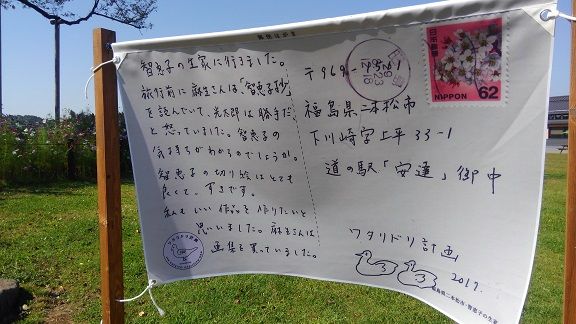 郵便はがき
智恵子の生家に行きました。
旅行前に麻生さんは、「智恵子抄」
を読んでいて、光太郎は勝手だ
と怒っていました。智恵子の
気持ちがわかるのでしょうか。
智恵子の切り絵はとても
良くて、すきです。
私もいい作品を作りたいと
思いました。麻生さんは
画集を買っていました。
ワタリドリ計画
〒969-1511
福島県二本松市
下川崎字上平33-1
道の駅「安達」御中
ワタリドリ計画
2017.
福島県二本松市・智恵子の生家
日本郵便
NIPPON 62